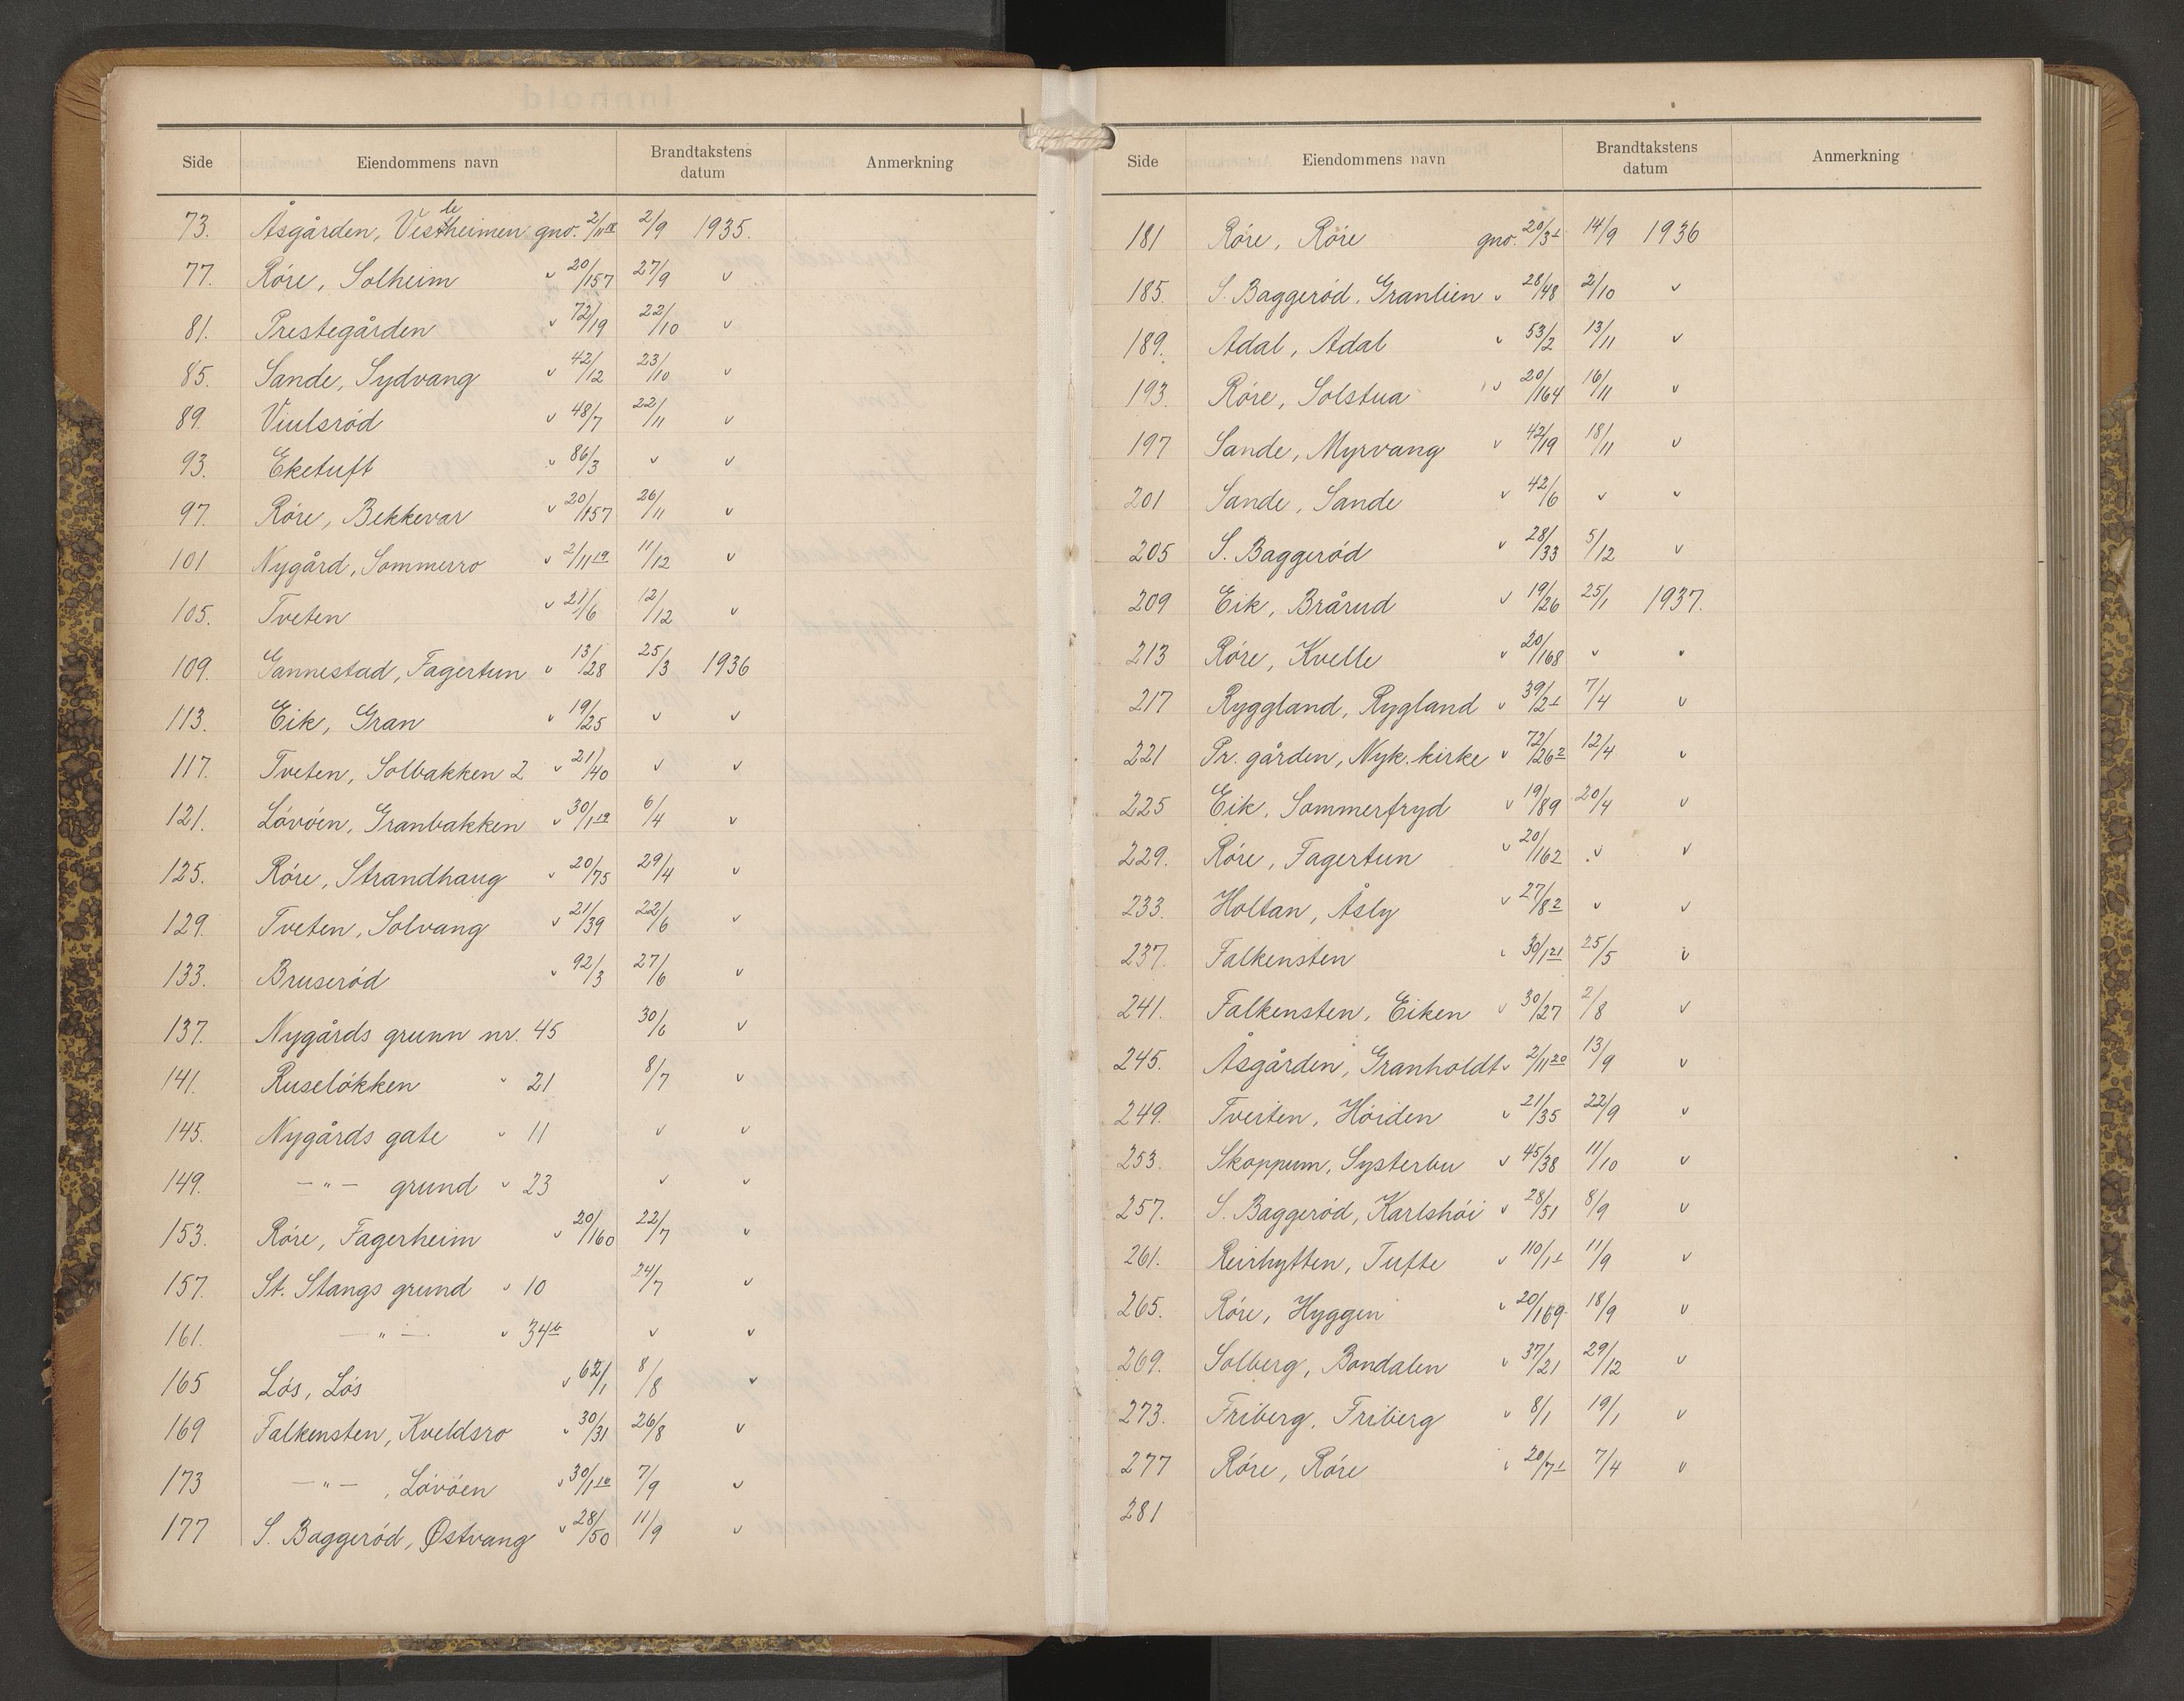 Side Eiendommens navn Brandtakstens datum Anmerkning
73. Åsgården, Vestheimen gno. 2/11 18 2/9 1935.
77. Röre, Solheim " 20/157 27/9 "
81. Prestegården " 72/19 22/10 "
85. Sande, Sydvang " 42/12 23/10 "
89. Viulsröd " 48/7 22/11 "
93. Eketuft " 86/3 " "
97. Röre, Bekkevar " 20/157 26/11 "
101 Nygård, Sommerro " 2/11 19 11/12 "
105. Tveten " 21/6 12/12 "
109. Gannestad, Fagertun " 13/28 25/3 1936
113. Eik, Gran " 19/25 " "
117. Tveten, Solbakken 2 " 21/40 " "
121. Lövöen, Granbakken " 30/1 19 6/4 "
125. Röre, Strandhaug " 20/75 29/4 "
129. Tveten, Solvang " 21/39 22/6 "
133. Bruseröd " 92/3 27/6 "
137. Nygårds grunn nr. 45 30/6 "
141. Ruselökken " 21 8/7 "
145. Nygårds gate " 11 " "
149. — " — grund " 23 " "
153. Röre, Fagerheim " 20/160 22/7 "
157. St. Stangs grund " 10 24/7 "
161. — " — " 34 b " "
165 Lös, Lös " 62/1 8/8 "
169 Falkensten, Kveldsro " 30/31 26/8 "
173 — " — , Lövöen " 30/1 16 7/9 "
177 S. Baggeröd, Østvang " 28/50 11/9 "
Side Eiendommens navn Brandtakstens datum Anmerkning
181 Röre, Röre gno. 20/3 1 14/9 1936
185. S. Baggeröd, Granlien " 28/48 2/10 "
189. Adal, Adal " 53/2 13/11 "
193. Röre, Solstua " 20/164 16/11 "
197 Sande, Myrvang " 42/19 18/11 "
201 Sande, Sande " 42/6 " "
205 S. Baggeröd " 28/33 5/12 "
209 Eik, Brårud " 19/26 25/1 1937.
213 Röre, Kvelle " 20/168 " "
217 Ryggland, Rygland " 39/2 1 7/4 "
221 Pr. gården, Nyk. kirke " 72/26 2 12/4 "
225 Eik, Sommerfryd " 19/89 20/4 "
229. Röre, Fagertun " 20/162 " "
233. Holtan, Åsly " 27/8 2 " "
237. Falkensten " 30/1 21 25/5 "
241. Falkensten, Eiken " 30/27 2/8 "
245. Åsgården, Granholdt " 2/11 20 13/9 "
249. Tveiten, Höiden " 21/35 22/9 "
253. Skoppum, Systerbu " 45/38 11/10 "
257. S. Baggeröd, Karlshöi " 28/51 8/9 "
261. Reirhytten, Tufte " 110/1 1 11/9 "
265. Röre, Hyggen " 20/169 18/9 "
269. Solberg, Bondalen " 37/21 29/12 "
273. Friberg, Friberg " 8/1 19/1 "
277 Röre, Röre " 20/7 1 7/4 "
281